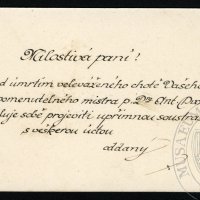 Milostivá paní!
d úmrtím velevážného chotě Vašeho
pomenutelného mistra p. Dra Ant. Dvo
luje sobě projeviti upřímnou soustra
s veškerou úctou
oddaný
MUSAE